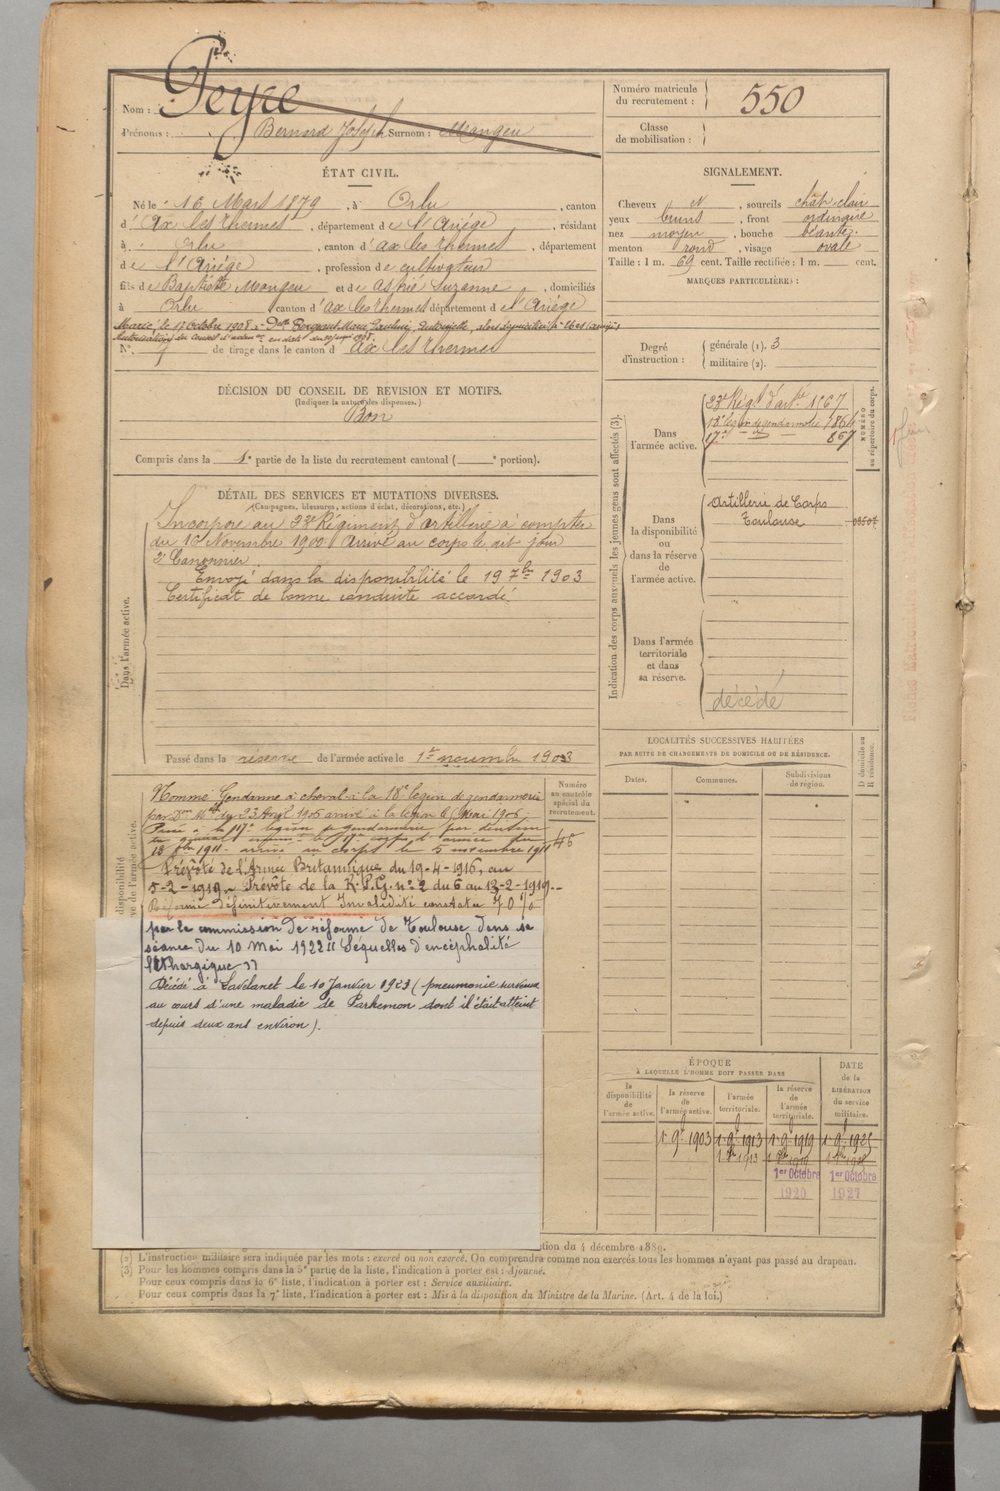 Nom : Peyre
Prénoms : Bernard Joseph Surnom : Mangeu
ÉTAT CIVIL.
Né le 16 Mars 1879, à Orlu, canton
d'Ax les Thermes, département de l'Ariége, résidant
à Orlu, canton d'ax les thermes, département
de l'Ariége, profession de cultivateur
fils de Baptiste Mangeu et de Aspié Suzanne, domiciliés
à Orlu canton d'ax les thermes département de l'Ariége
Marié, le 17 Octobre 1908
N° 7 de tirage dans le canton d'Ax les thermes
DÉCISION DU CONSEIL DE REVISION ET MOTIFS.
(Indiquer la nature des dispenses.)
Bon
Compris dans la 1e partie de la liste du recrutement cantonal ( e portion).
DÉTAIL DES SERVICES ET MUTATIONS DIVERSES.
(Campagnes, blessures, actions d'éclat, décorations, etc.)
Dans l'armée active.
Incorporé au 23e Régiment d'artillerie à compter
du 16 Novembre 1900. Arrivé au corps le dit jour
2e Canonnier
Envoyé dans la disponibilité le 19 7bre 1903
Certificat de bonne conduite accordé.
Passé dans la réserve de l'armée active le 1er novembre 1903
disponibilité
ve de l'armée active.
Nommé Gendarme à cheval à la 18e légion de gendarmerie
par Don Melle du 23 Avril 1906 arrivé à la légion le 6 Mai 1906.
Passé à la 17e légion de gendarmerie par décision
13 8bre 1911 - arrivé au corps le 5 novembre 1911
Prévôté de l'Armée Britannique du 19-4-1916, au
5-2-1919. Prévôté de la R.P.G. n° 2 du 6 au 13-2-1919.
Réformé définitivement Invalidité constatée 70 %
par la commission de réforme de Toulouse dans sa
séance du 10 Mai 1922 "Séquelles d'encéphalité
léthargique"
Décédé à Lavelanet le 10 Janvier 1923 (pneumonie survenue
au cours d'une maladie de Parkemon dont il était atteint
depuis deux ans environ).
Numéro
au contrôle
spécial du
recrutement.
46
Numéro matricule
du recrutement : 550
Classe
de mobilisation :
SIGNALEMENT.
Cheveux N, sourcils chât clair
yeux bruns, front ordinaire
nez moyen, bouche béante
menton rond, visage ovale
Taille : 1 m. 69 cent. Taille rectifiée : 1 m. cent.
MARQUES PARTICULIÈRES :
Degré
d'instruction :
générale (1). 3
militaire (2).
Indication des corps auxquels les jeunes gens sont affectés (3).
NUMÉRO
au répertoire du corps.
Dans
l'armée active.
23e Régt d'artie 1567
18e légion de gendarmerie 1864
17e - d° - 867
Dans
la disponibilité
ou
dans la réserve
de
l'armée active.
Artillerie de Corps
Toulouse
Dans l'armée
territoriale
et dans
sa réserve.
décédé
LOCALITÉS SUCCESSIVES HABITÉES
PAR SUITE DE CHANGEMENTS DE DOMICILE OU DE RÉSIDENCE.
Dates.
Communes.
Subdivisions
de région.
D domicile ou
R résidence.
ÉPOQUE
À LAQUELLE L'HOMME DOIT PASSER DANS
la
disponibilité
de
l'armée active.
la réserve
de
l'armée active.
l'armée
territoriale.
la réserve
de
l'armée
territoriale.
DATE
de la
LIBÉRATION
du service
militaire.
1 9e 1903 1 9e 1913 1 9e 1919 1 9e 1925
1er Octobre 1er Octobre
1920 1927
tion du 4 décembre 1889.
(2) L'instruction militaire sera indiquée par les mots : exercé ou non exercé. On comprendra comme non exercés tous les hommes n'ayant pas passé au drapeau.
(3) Pour les hommes compris dans la 5e partie de la liste, l'indication à porter est : Ajourné.
Pour ceux compris dans la 6e liste, l'indication à porter est : Service auxiliaire.
Pour ceux compris dans la 7e liste, l'indication à porter est : Mis à la disposition du Ministre de la Marine. (Art. 4 de la loi.)